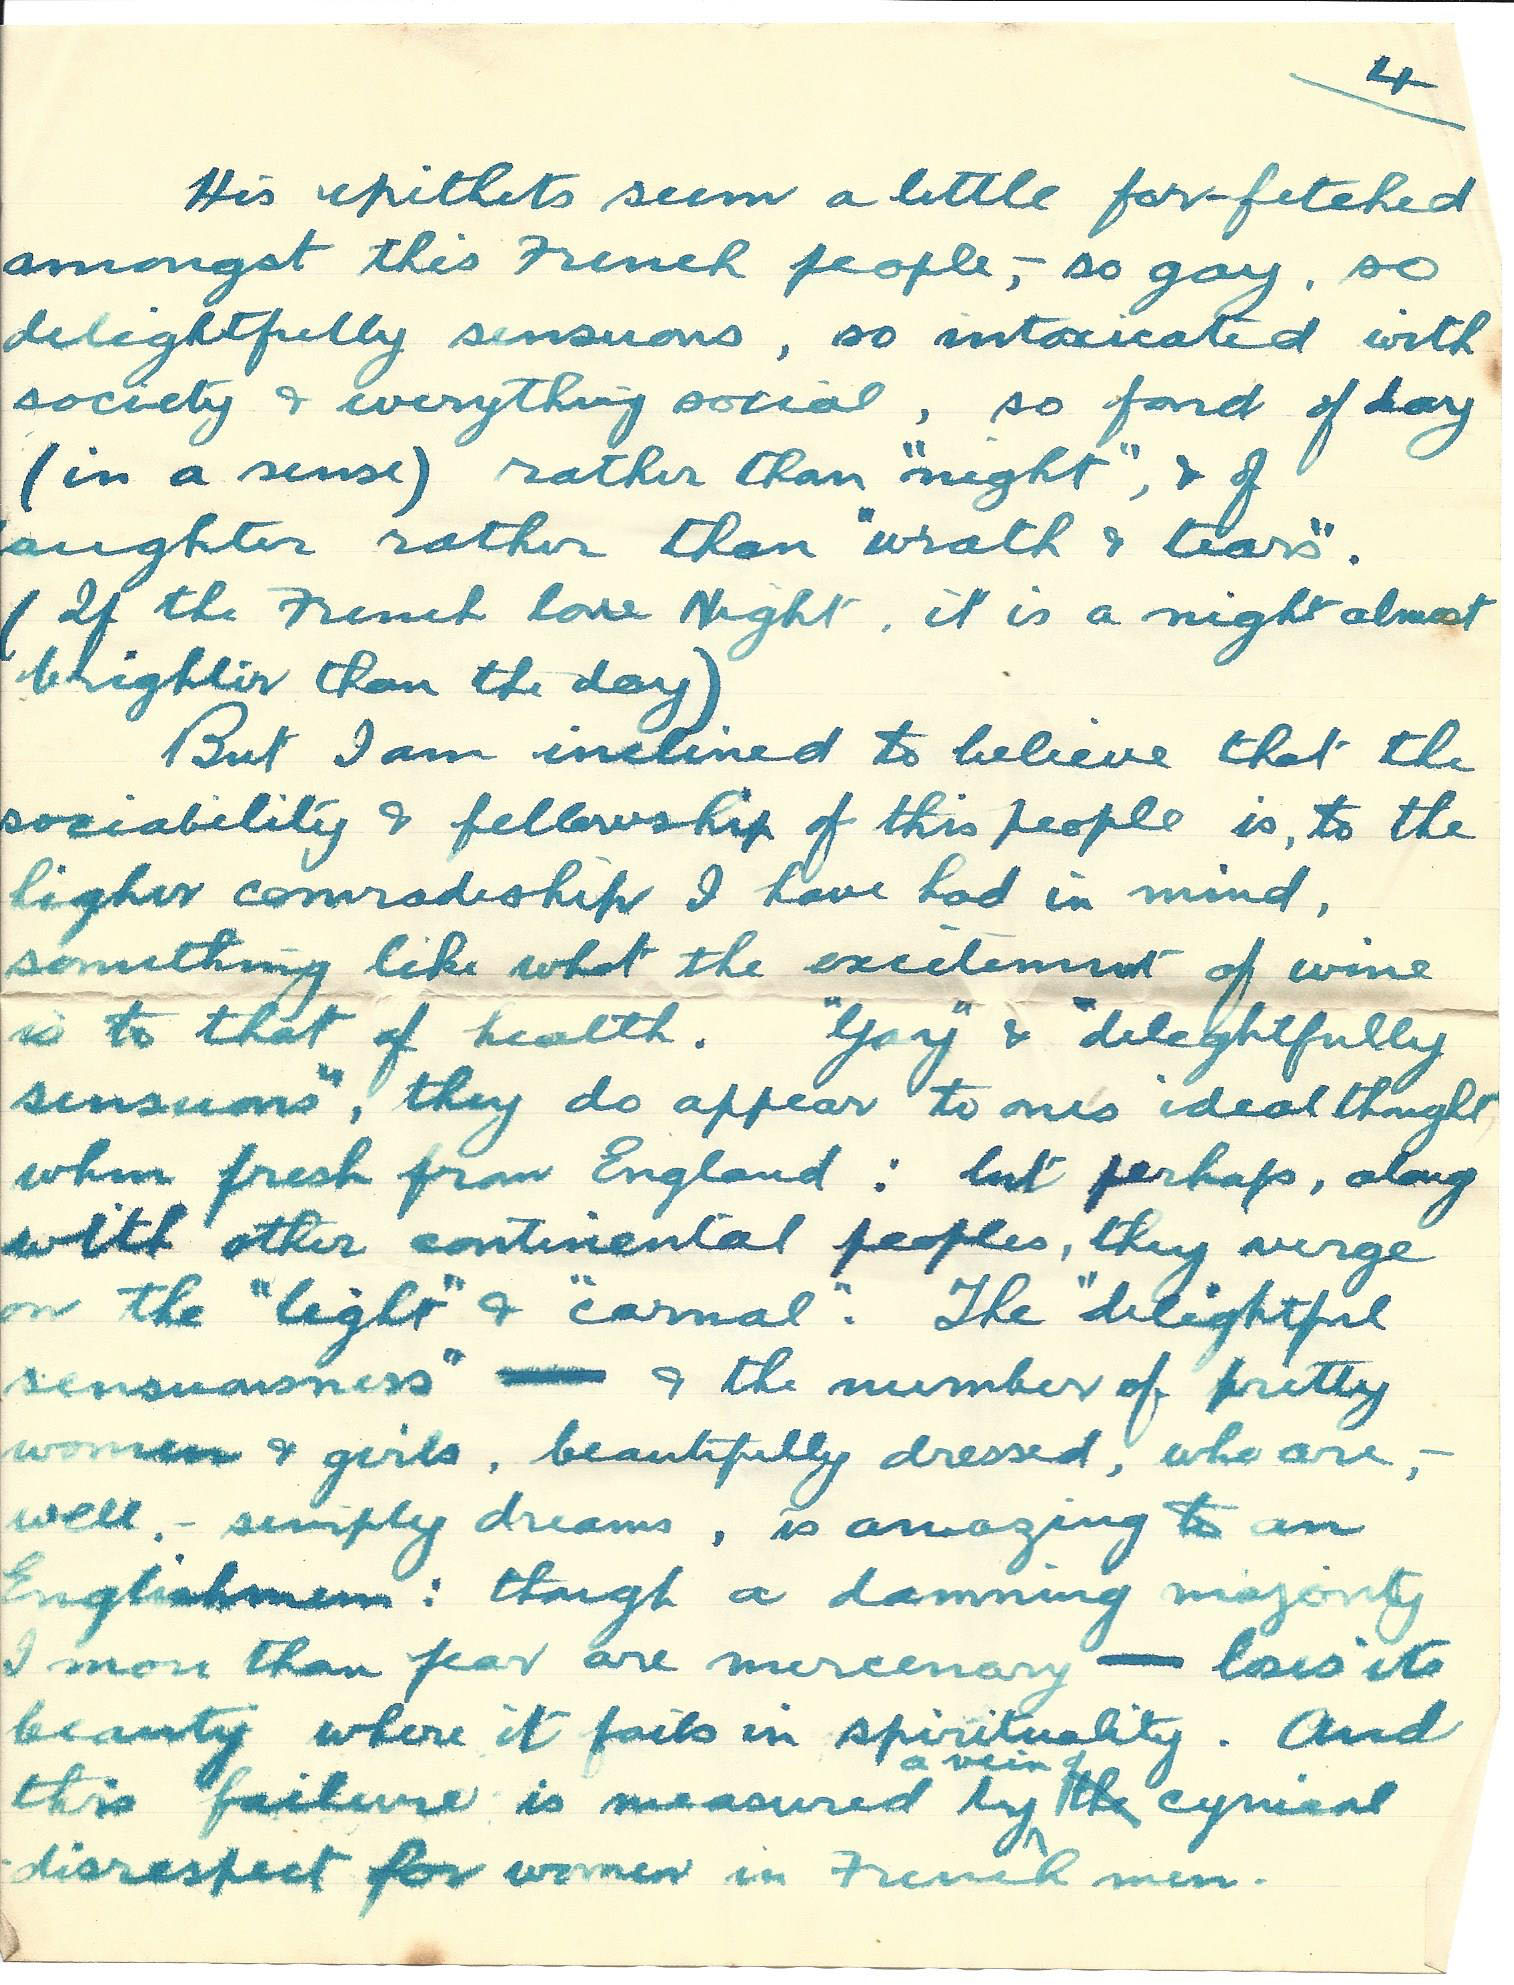 4
His epithets seem a little far-fetched
amongst this French people,- so gay, so
delightfully sensuous, so intoxicated with
society & everything social, so fond of day
(in a sense) rather than "night", & of
laughter rather than "wrath & tears".
(If the French love Night, it is a night almost
brighter than the day)
But I am inclined to believe that the
sociability & fellowship of this people is, to the
higher comradeship I have had in mind,
something like what the excitement of wine
is to that of health. "Gay" & "delightfully
sensuous", they do appear to ones ideal thought,
when fresh from England: but perhaps, along
with other continental peoples, they verge
on the "light" & "carnal". The "delightful
sensuousness" — & the number of pretty
women & girls, beautifully dressed, who are,-
well,- simply dreams, is amazing to an
Englishmen: though a damning majority
I more than fear are mercenary — loses its
beauty where it fails in spirituality. And
a vein of
this failure is measured by the cynical
disrespect for women in French men.